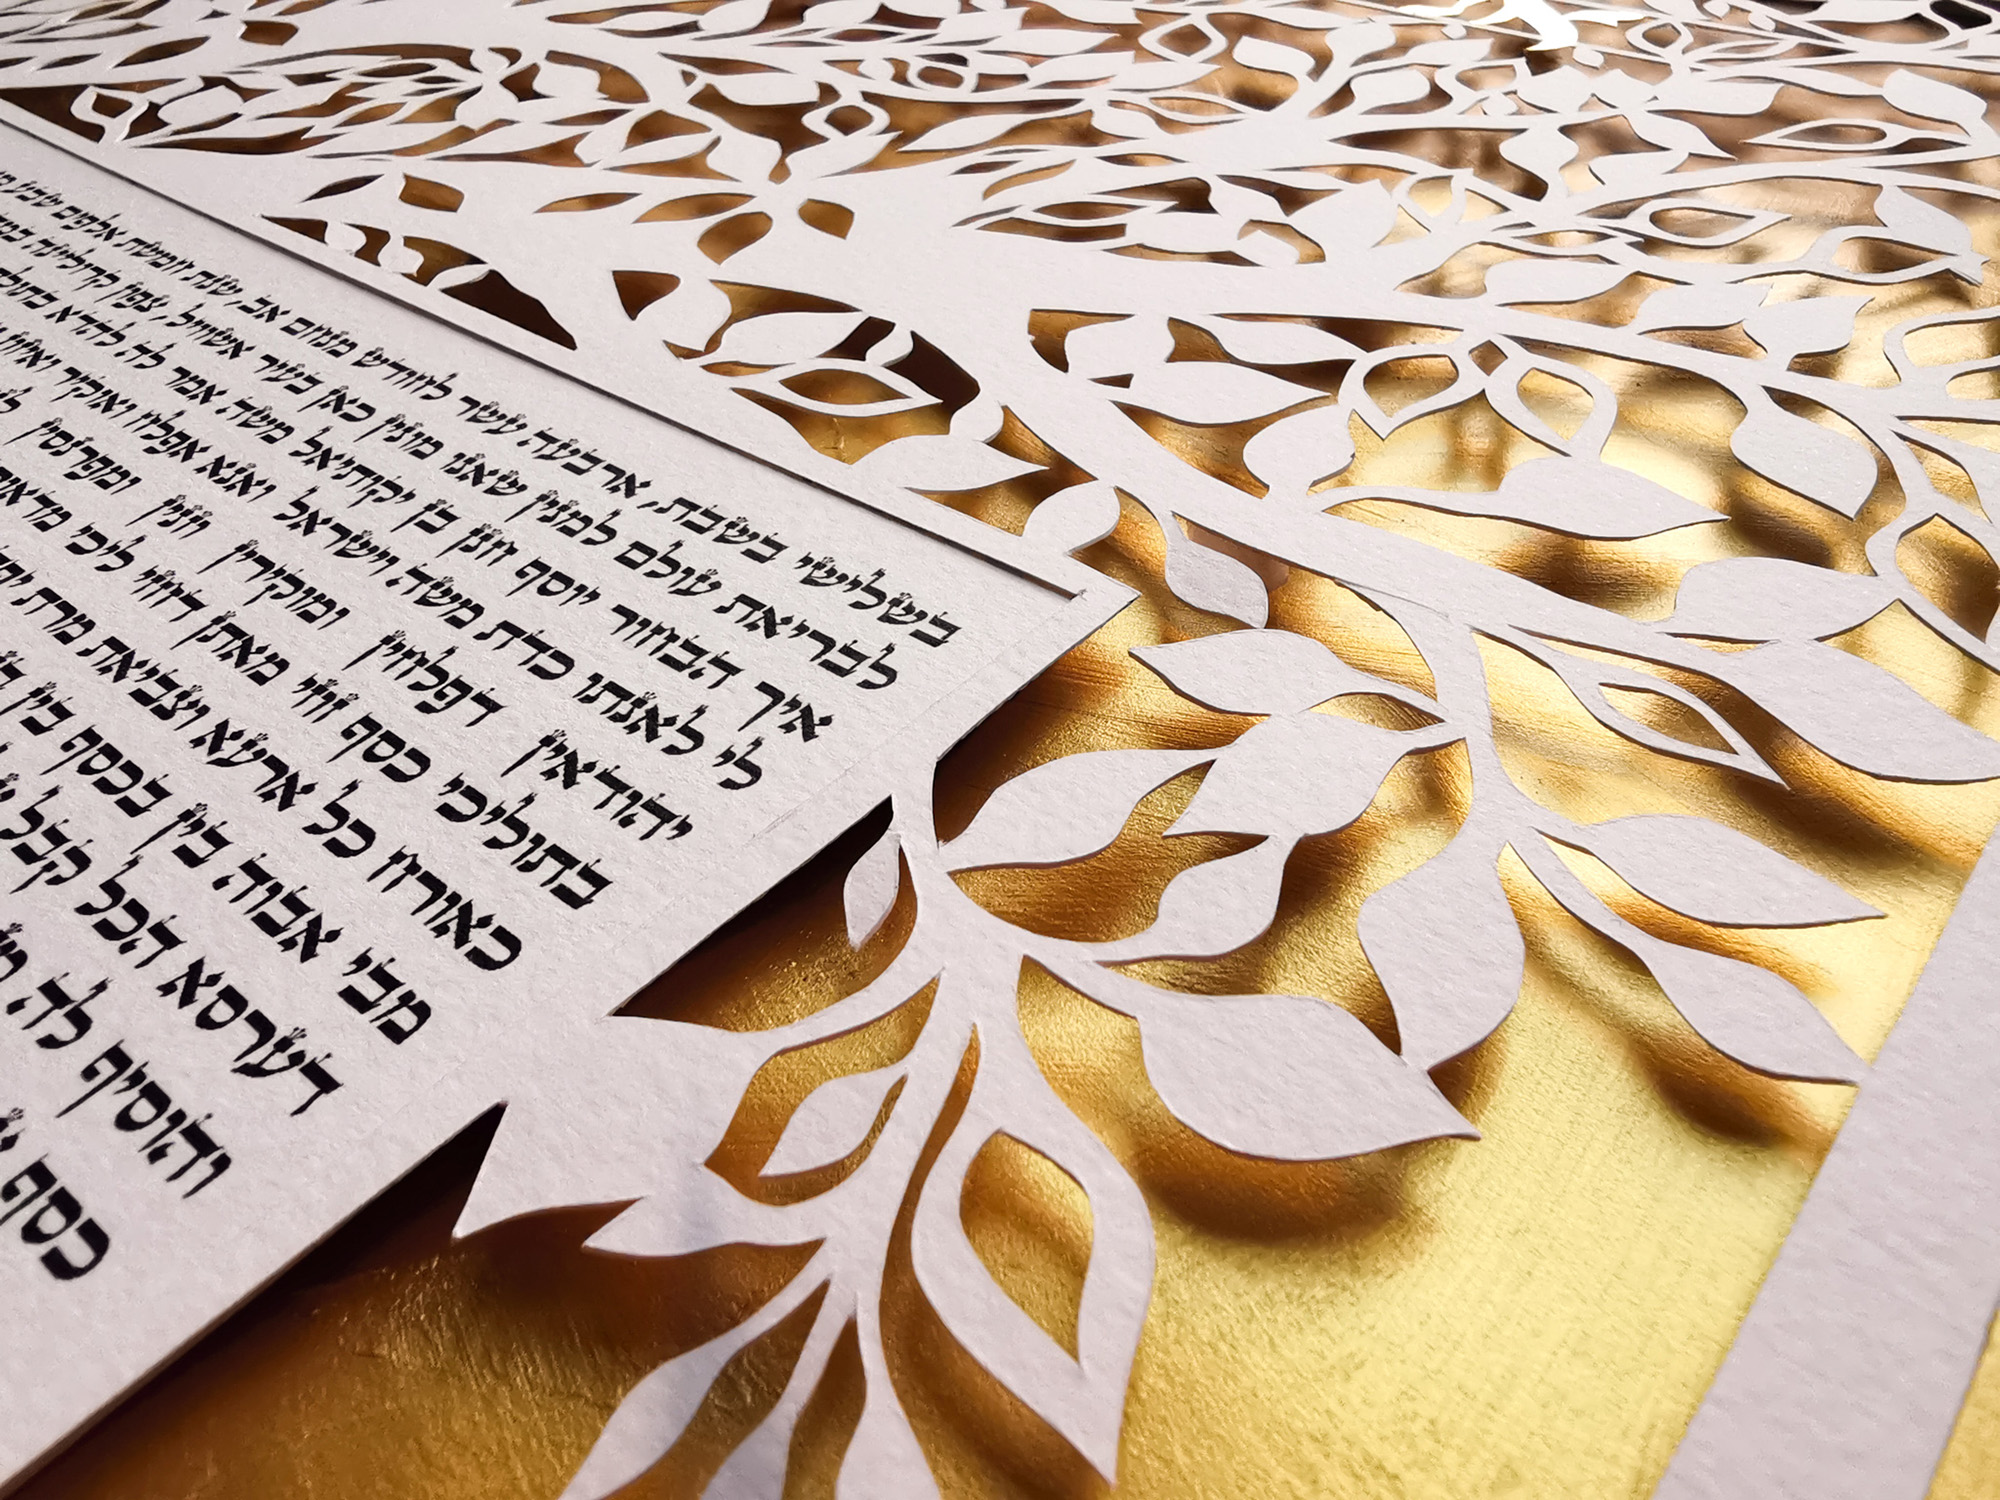 בשלישי בשבת, ארבעה עשר לחודש מנחם אב, שנת חמשת אלפים שבע
לבריאת עולם למנין שאנו מונין כאן בעיר אשוויל, צפון קרולינה
איך הבחור יוסף חנן בן יקותיאל משה אמר לה להדא
לי לאנתו כדת משה וישראל ואנא אפלח ואוקיר
יהודאין דפלחין ומוקירין וזנין ומפרנסין
בתוליכי כסף זוזי מאתן דחזי ליכי
כאורח כל ארעא וצביאת מרת
מבי אבוה בין בכסף בין
דערסא הכל קבל
והוסיף לה
כסף